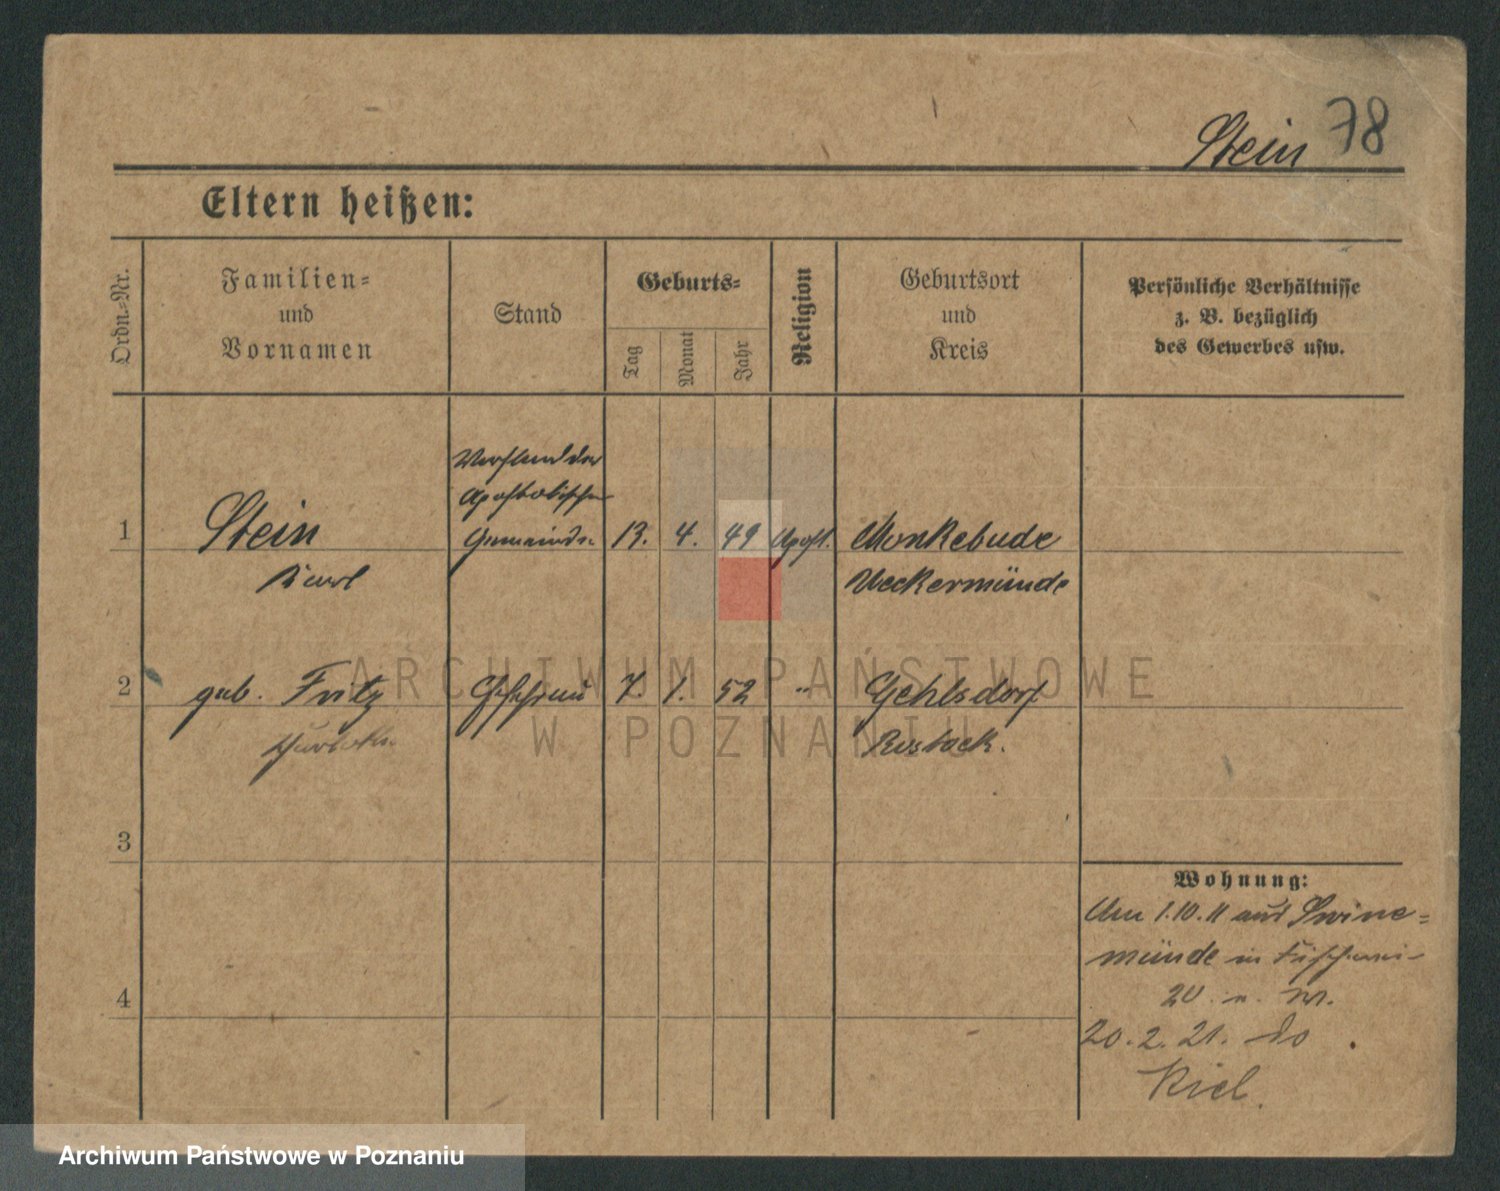 Stein 78
Eltern heißen:
Ordn.-Nr.
Familien-
und
Vornamen
Stand
Geburts-
Tag
Monat
Jahr
Religion
Geburtsort
und
Kreis
Persönliche Verhältnisse
z. B. bezüglich
des Gewerbes usw.
Vorstand der
Apostolischen
1 Stein Gemeinde 13. 4. 49 Apost. Monkebude
Karl Ueckermünde
2 geb. Fritz Ehefrau 7. 1. 52 " Gehlsdorf
Rostock.
3
Wohnung:
Am 1.10.11 aus Swine-
münde in
4
20
20.2.21.
Kiel.
ARCHIWUM PAŃSTWOWE
W POZNANIU
Archiwum Państwowe w Poznaniu